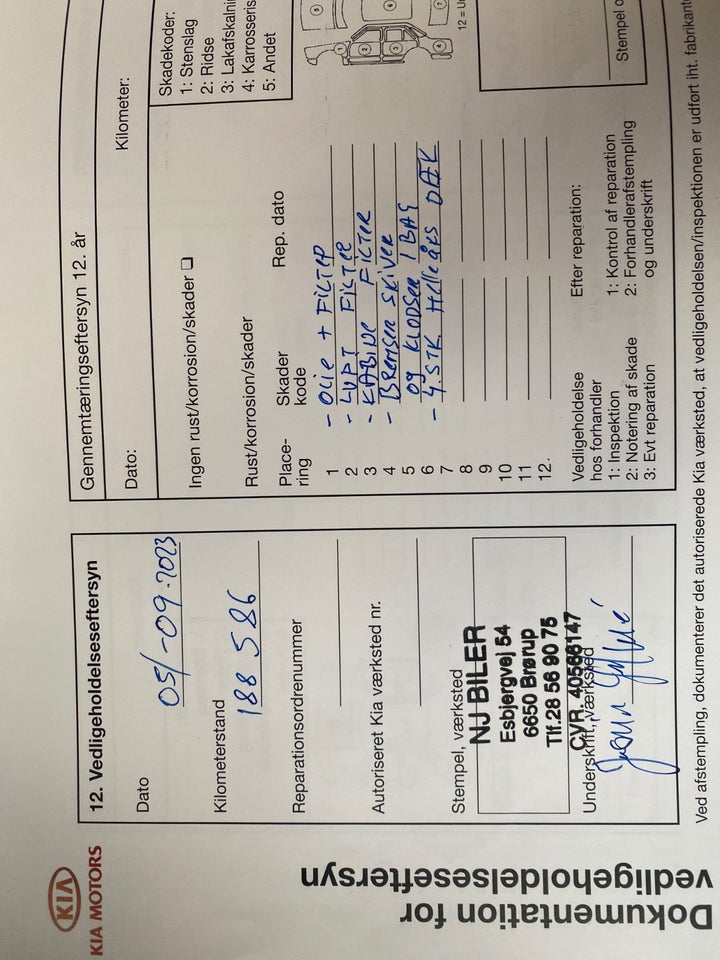 KIA
KIA MOTORS
Dokumentation for
vedligeholdelseseftersyn
12. Vedligeholdelseseftersyn
Dato
05/-09-2023
Kilometerstand
188 586
Reparationsordrenummer
Autoriseret Kia værksted nr.
Stempel, værksted
NJ BILER
Esbjergvej 54
6650 Brørup
Tlf.28 56 90 75
CVR. 40566147
Underskrift, værksted
Gennemtæringseftersyn 12. år
Dato:
Kilometer:
Ingen rust/korrosion/skader
Rust/korrosion/skader
Place-
ring
Skader
kode
Rep. dato
1 - OLIE + FILTER
2 - LUFT FILTER
3 - KABINE FILTER
4 - BREMSER SKIVER
5 og KLODSER I BAG
6 - 4.STK HELLEÅRS DÆK
7
8
9
10
11
12.
Skadekoder:
1: Stenslag
2: Ridse
3: Lakafskalni
4: Karrosseris
5: Andet
12 = U
Vedligeholdelse
hos forhandler
1: Inspektion
2: Notering af skade
3: Evt reparation
Efter reparation:
1: Kontrol af reparation
2: Forhandlerafstempling
og underskrift
Stempel o
Ved afstempling, dokumenterer det autoriserede Kia værksted, at vedligeholdelsen/inspektionen er udført iht. fabrikant